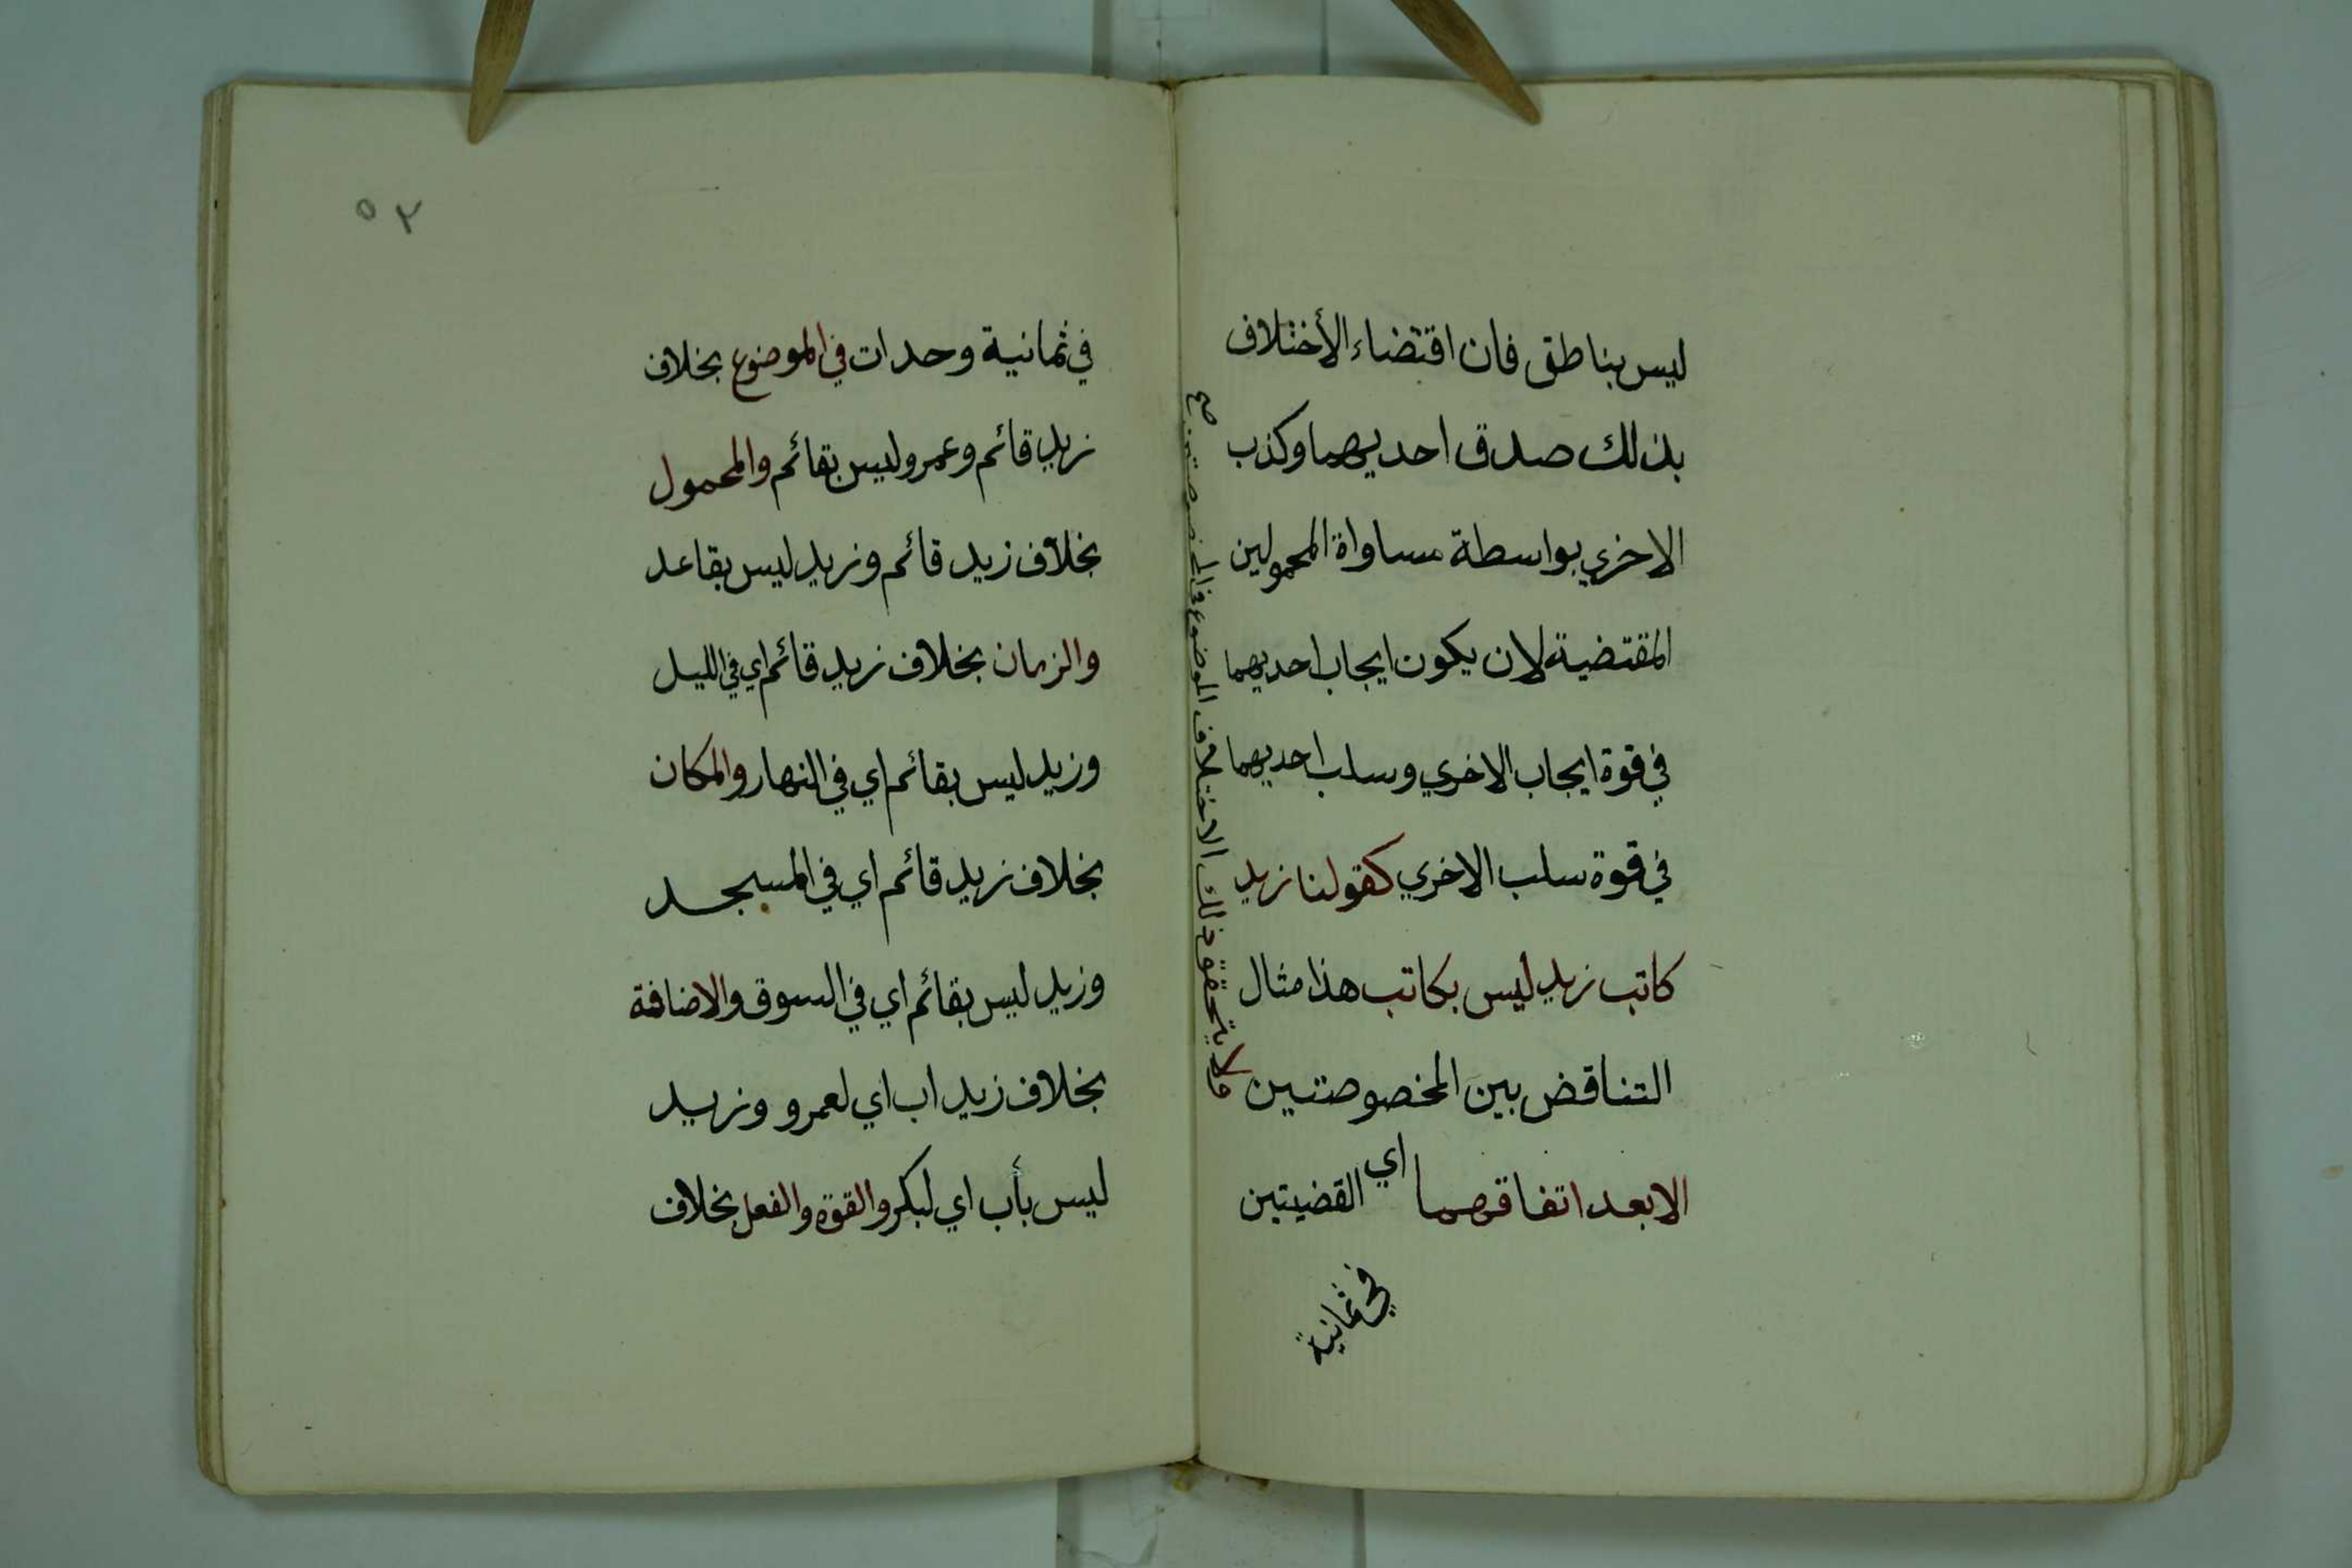 ليس بناطق فان اقتضاء الأختلاف
بذلك صدق احديهما وكذب
الاخري بواسطة مساواة المحمولين
المقتضية لان يكون ايجاب احديهما
في قوة ايجاب الاخري وسلب احديهما
في قوة سلب الاخري كقولنا زيد
كاتب زيد ليس بكاتب هذا مثال
التناقض بين المخصوصتين
ولا يتحقق ذلك الاختلاف الموضوع في المخصوصتين صح
الا بعد اتفاقهما اي القضيتين
في ثمانية
٥٢
في ثمانية وحدات في الموضوع بخلاف
زيد قائم وعمرو ليس بقائم والمحمول
بخلاف زيد قائم وزيد ليس بقاعد
والزمان بخلاف زيد قائم اي في الليل
وزيد ليس بقائم اي في النهار والمكان
بخلاف زيد قائم اي في المسجد
وزيد ليس بقائم اي في السوق والاضافة
بخلاف زيد اب اي لعمرو وزيد
ليس بأب اي لبكر والقوة والفعل بخلاف